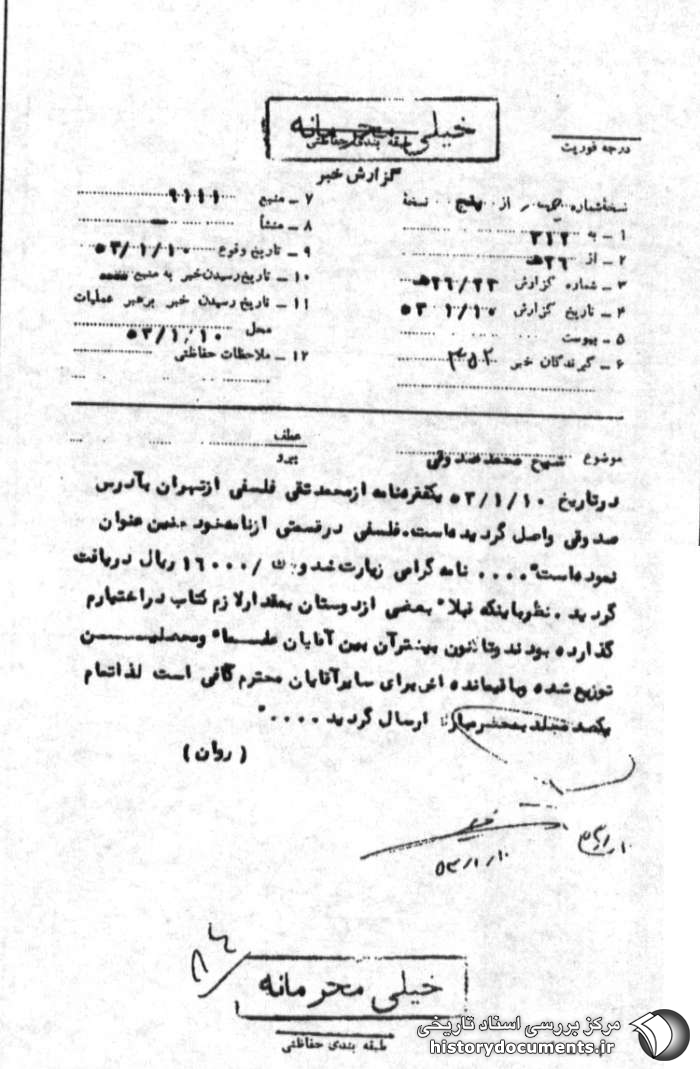 خیلی محرمانه
طبقه بندی حفاظتی
درجه فوریت
گزارش خبر
نسخهٔ شماره از پنج نسخهٔ
۱ ـ به ۳۱۲
۲ ـ از ۲۶ هـ
۳ ـ شماره گزارش ۲۶/۲۳ هـ
۴ ـ تاریخ گزارش ۵۳ ۱/۱۰
۵ ـ پیوست
۶ ـ گیرندگان خبر
۷ ـ منبع ۹۱۱۱
۸ ـ منشأ ـ
۹ ـ تاریخ وقوع ۵۳/۱/۱۰
۱۰ ـ تاریخ رسیدن خبر به منبع
۱۱ ـ تاریخ رسیدن خبر برهبر عملیات
محل ۵۳/۱/۱۰
۱۲ ـ ملاحظات حفاظتی
موضوع شیخ محمد صدوقی
عطف
پیرو
در تاریخ ۵۳/۱/۱۰ یکفقره نامه از محمد تقی فلسفی از تهران بآدرس
صدوقی واصل گردیده است. فلسفی در قسمتی از نامه خود چنین عنوان
نموده است "۰۰۰۰ نامه گرامی زیارت شد و /۱۶۰۰۰ ریال دریافت
گردید. نظر باینکه قبلا" بعضی از دوستان مقدار لازم کتاب در اختیارم
گذارده بودند و تاکنون بیشتر آن بین آقایان علماء و محصلیـــن
توزیع شده و باقیمانده اش برای سایر آقایان محترم کافی است لذا تمام
یکصد جلد بمحضر مبارک ارسال گردید ۰۰۰۰"
(روان)
۵۳/۱/۱۰
خیلی محرمانه
طبقه بندی حفاظتی
مرکز بررسی اسناد تاریخی
historydocuments.ir